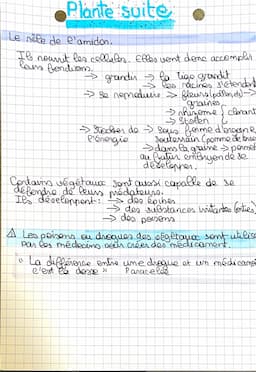 Plante suite
Le rôle de l'amidon.
Ils nourrit les cellules. Elles vont donc accomplir
leurs fonctions.
→ grandir → la tige grandit
→ les racines s'étendent
→ Se reproduire → fleurs (pollen) →
graines
→ rhizome
→ stolon } clonant
→ Stocker de → Sous forme d'organe
l'énergie souterrain (pomme de terre
→ dans la graine → permet
au futur embryon de se
développer.
Certains végétaux sont aussi capable de se
défendre de leurs prédateurs.
Ils développent: → des épines
→ des substances irritantes (orties)
→ des poisons
⚠ Les poisons ou drogues des végétaux sont utilisé
par les médecins pour créer des médicament.
° La différence entre une drogue et un médicame
c'est la dose " Paracelse